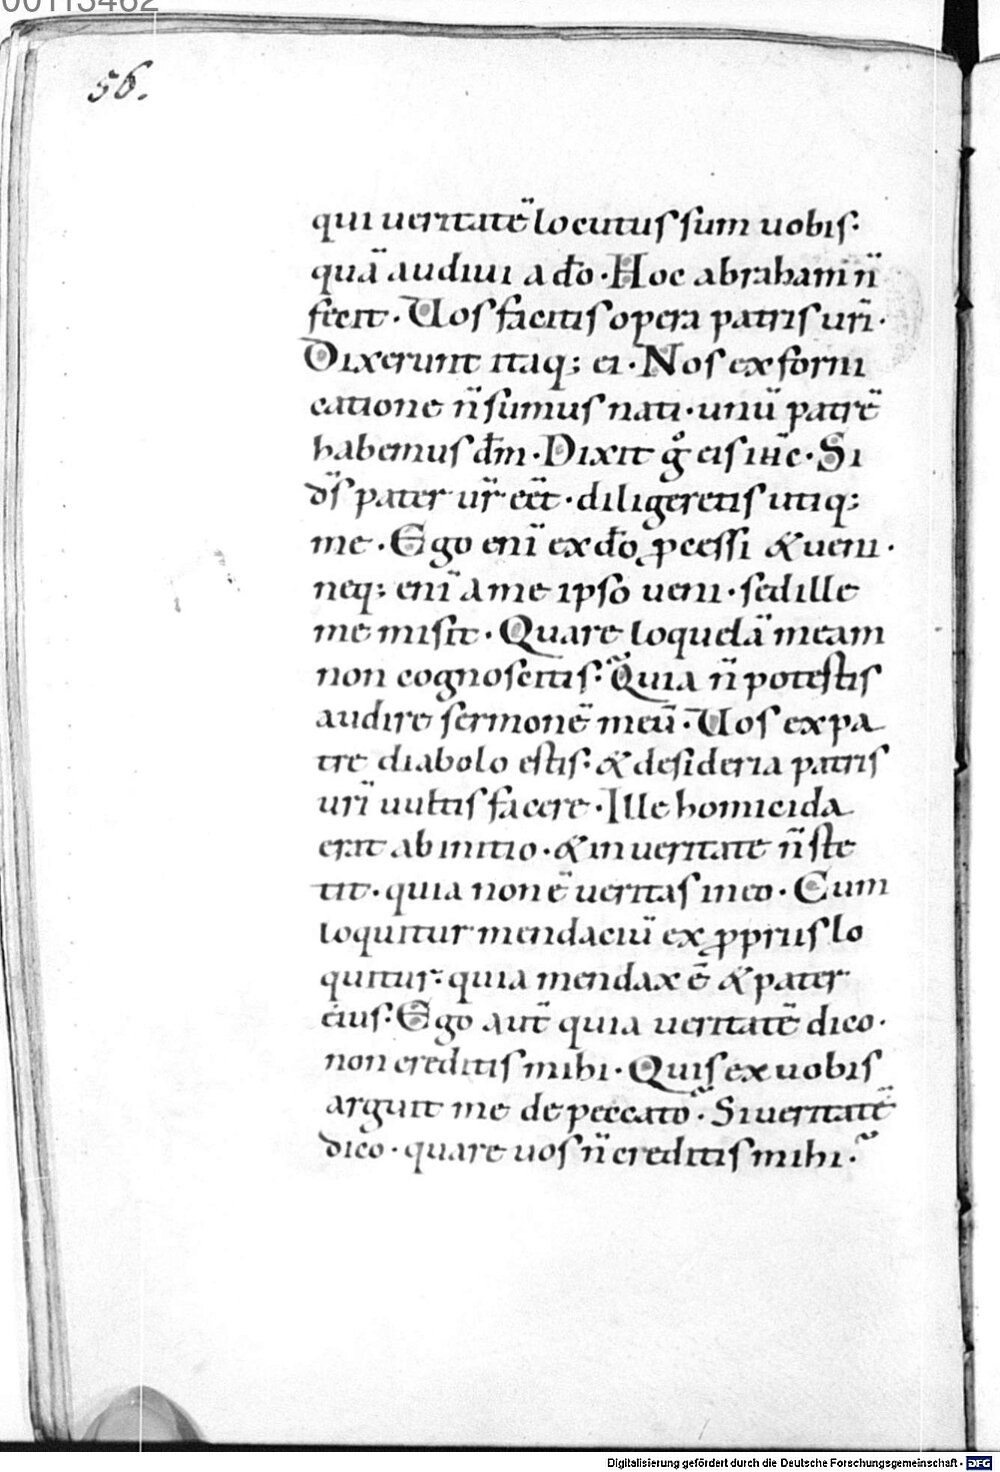 00113462
56.
qui ueritatē locutus sum uobis·
quā audiui a do̅· Hoc abraham n̅
fecit· Uos facitis opera patris uri̅·
Dixerunt itaq; ei· Nos ex forni
catione n̅ sumus nati· unū patrē
habemus dm̅· Dixit gͦ eis ihc̅· Si
ds̅ pater ur̅ eēt· diligeretis utiq;
me· Ego eni̅ ex do̅ ꝓcessi & ueni·
neq; eni̅ a me ipso ueni· sed ille
me misit· Quare loquelā meam
non cognoscitis· Quia n̅ potestis
audire sermonē meū· Uos ex pa
tre diabolo estis· & desideria patris
uri̅ uultis facere· Ille homicida
erat ab initio· & in ueritate n̅ ste
tit· quia non ē ueritas in eo· Cum
loquitur mendaciū ex ꝓpriis lo
quitur· quia mendax ē & pater
eius· Ego aut̅ quia ueritatē dico·
non creditis mihi· Quis ex uobis
arguit me de peccato· Si ueritatē
dico· quare uos n̅ creditis mihi·
Digitalisierung gefördert durch die Deutsche Forschungsgemeinschaft - DFG